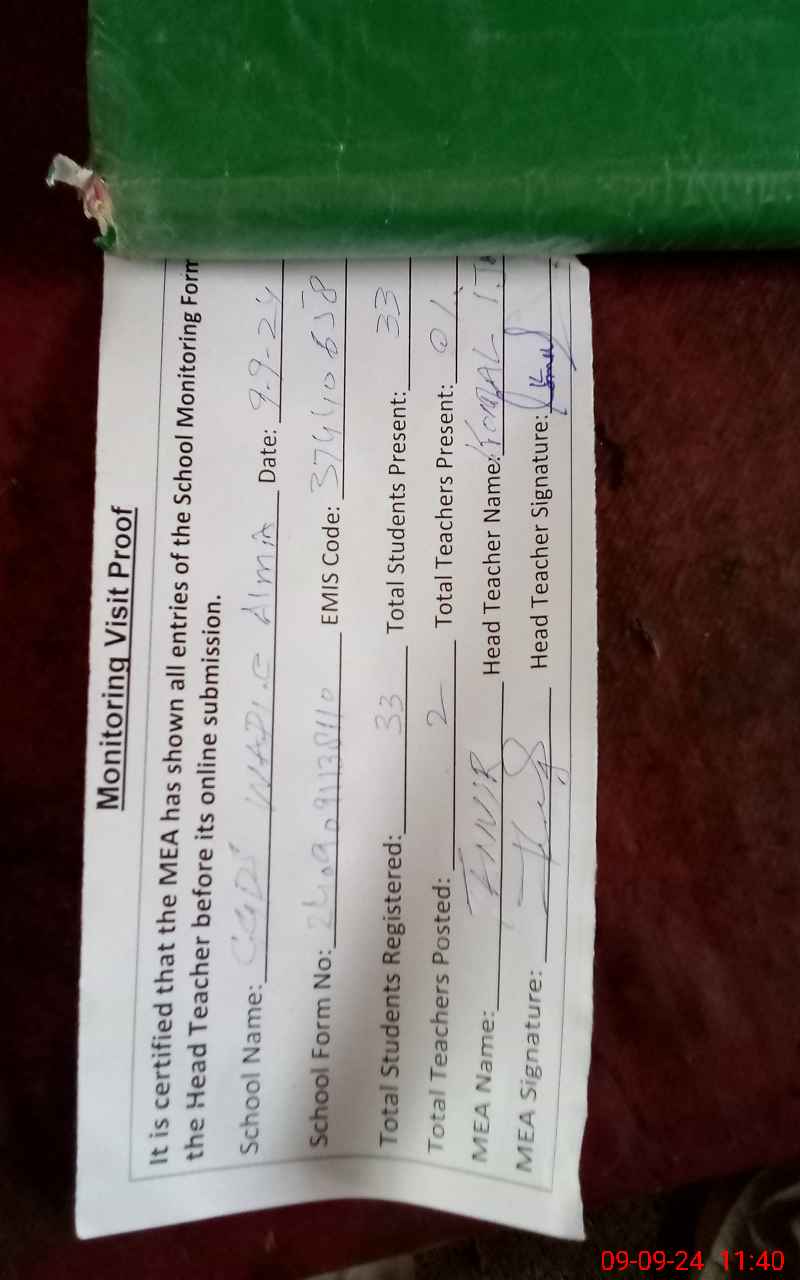 Monitoring Visit Proof
It is certified that the MEA has shown all entries of the School Monitoring Form
the Head Teacher before its online submission.
School Name: Date: 9-9-24
School Form No: EMIS Code: 37440658
Total Students Registered: 33 Total Students Present: 33
Total Teachers Posted: 2 Total Teachers Present: 01
MEA Name: Head Teacher Name: KOMAL
MEA Signature: Head Teacher Signature:
09-09-24 11:40